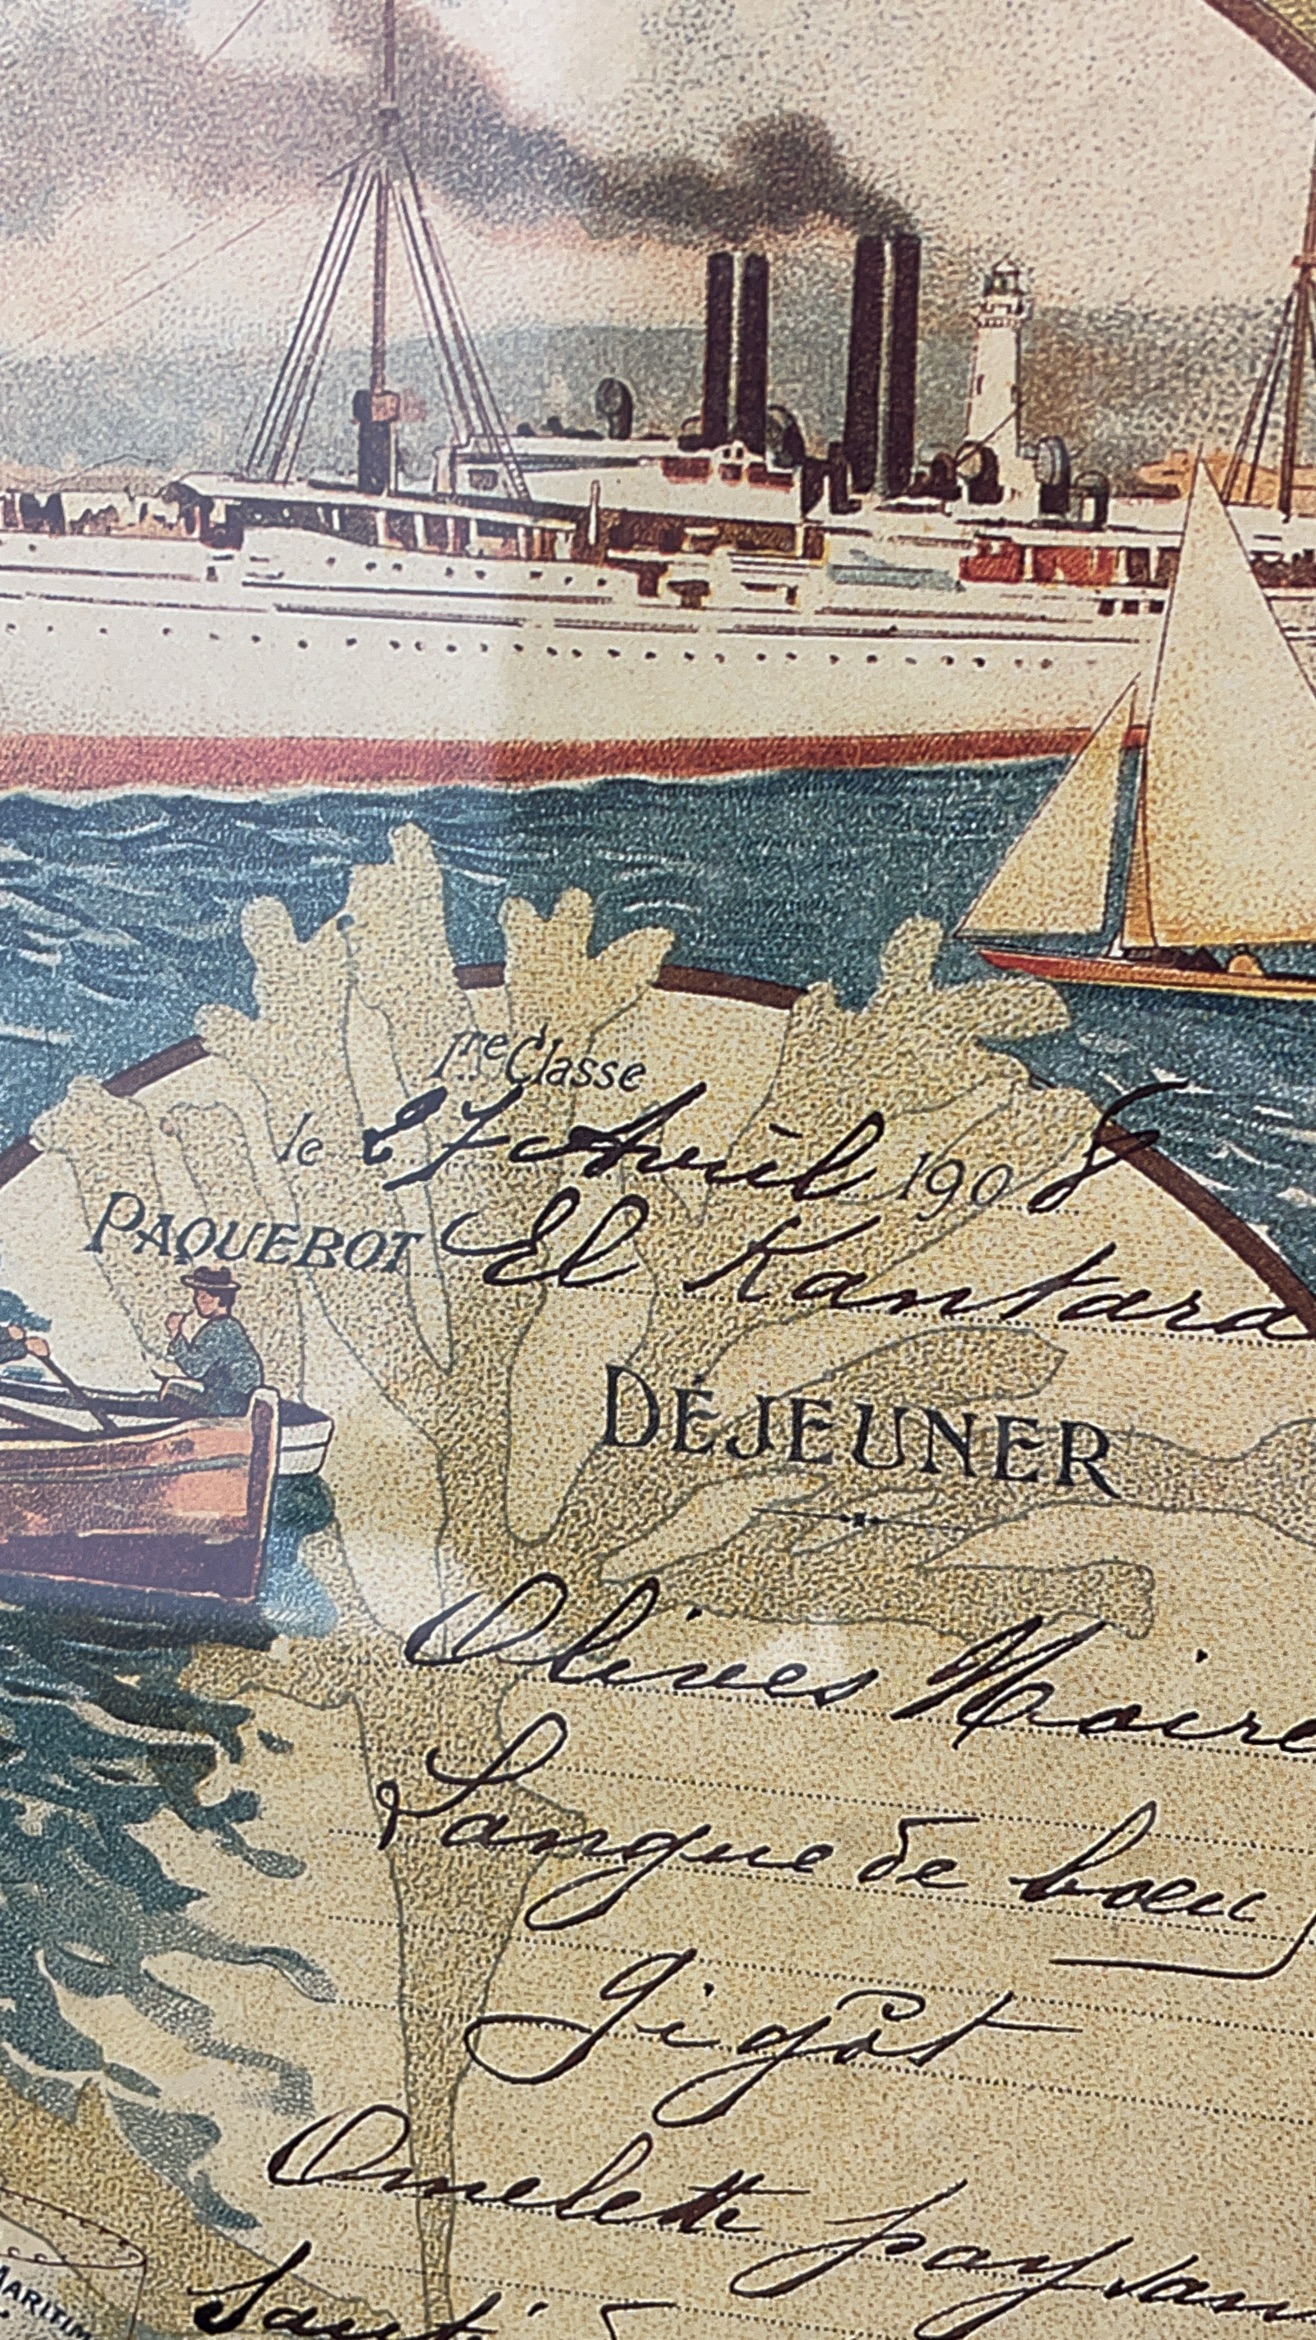 1re Classe
le 27 Avril 1908
PAQUEBOT El Kantara
DÉJEUNER
Olives Noire
Langue de boeu
gigôt
Omelette paysan
Sauté de
MARITIM